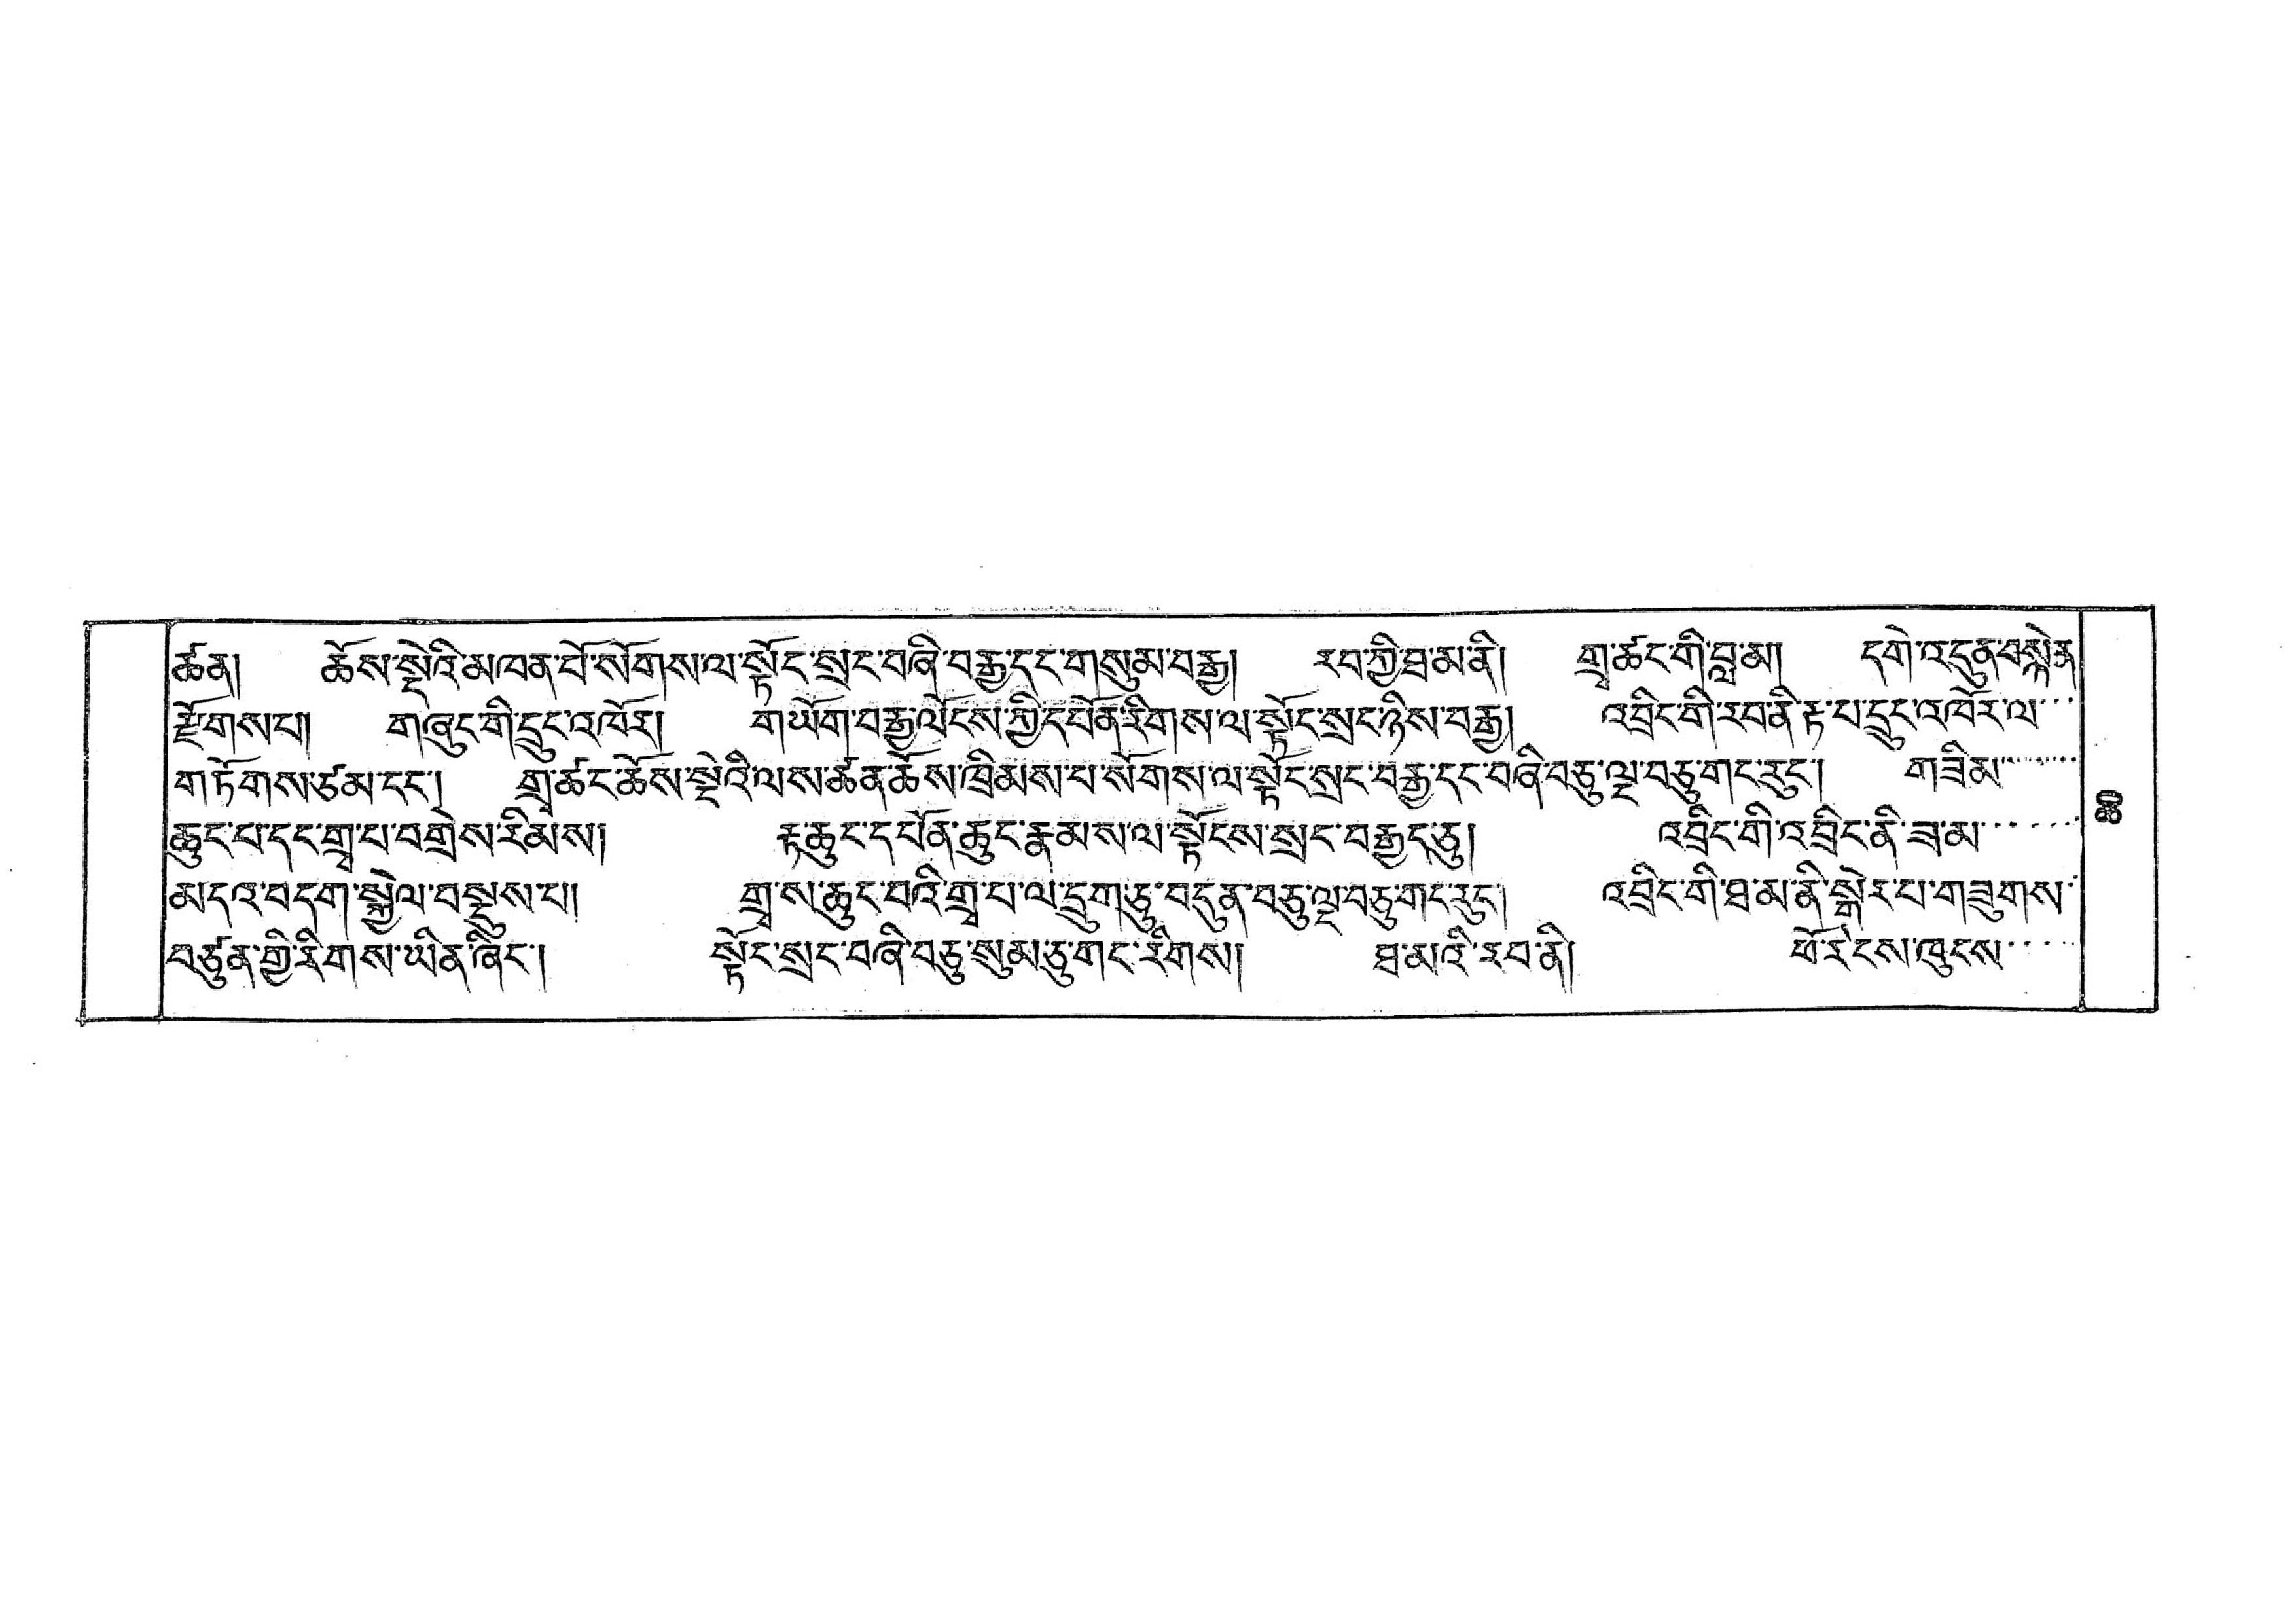 ཚན། ཆོས་སྡེའི་མཁན་པོ་སོགས་ལ་སྟོང་སྲང་བཞི་བརྒྱ་དང་གསུམ་བརྒྱ། རབ་ཀྱི་ཐ་མ་ནི། གྲྭ་ཚང་གི་བླ་མ། དགེ་འདུན་བསྙེན
རྫོགས་པ། གཞུང་གི་དྲུང་འཁོར། གཡོག་བརྒྱ་ལོངས་ཀྱི་དཔོན་རིགས་ལ་སྟོང་སྲང་ཉིས་བརྒྱ། འབྲིང་གི་རབ་ནི་རྟ་པ་དྲུང་འཁོར་ལ་་་
གཏོགས་ཙམ་དང་། གྲྭ་ཚང་ཆོས་སྡེའི་ལས་ཚན་ཆོས་ཁྲིམས་པ་སོགས་ལ་སྟོང་སྲང་བརྒྱ་དང་བཞི་བཅུ་ལྔ་བཅུ་གང་རུང་། གཟིམ་་་་་་
ཆུང་པ་དང་གྲྭ་པ་བགྲེས་རིམས། རྟ་ཆུང་དཔོན་ཆུང་རྣམས་ལ་སྟོངས་སྲང་བརྒྱད་ཅུ། འབྲིང་གི་འབྲིང་ནི་ཟླ་མ་་་་་་་
མདའ་བདག་སྐྱེལ་བསྡུས་པ། གྲྭ་ས་ཆུང་བའི་གྲྭ་པ་ལ་དྲུག་ཅུ་བདུན་བཅུ་ལྔ་བཅུ་གང་རུང་། འབྲིང་གི་ཐ་མ་ནི་སྒེར་པ་གཟུགས་་
བཙུན་གྱི་རིགས་ཡིན་ཞིང་། སྟོང་སྲང་བཞི་བཅུ་སུམ་ཅུ་གང་རིགས། ཐ་མའི་རབ་ནི། ཕོ་རེངས་ཁུངས་་་་་